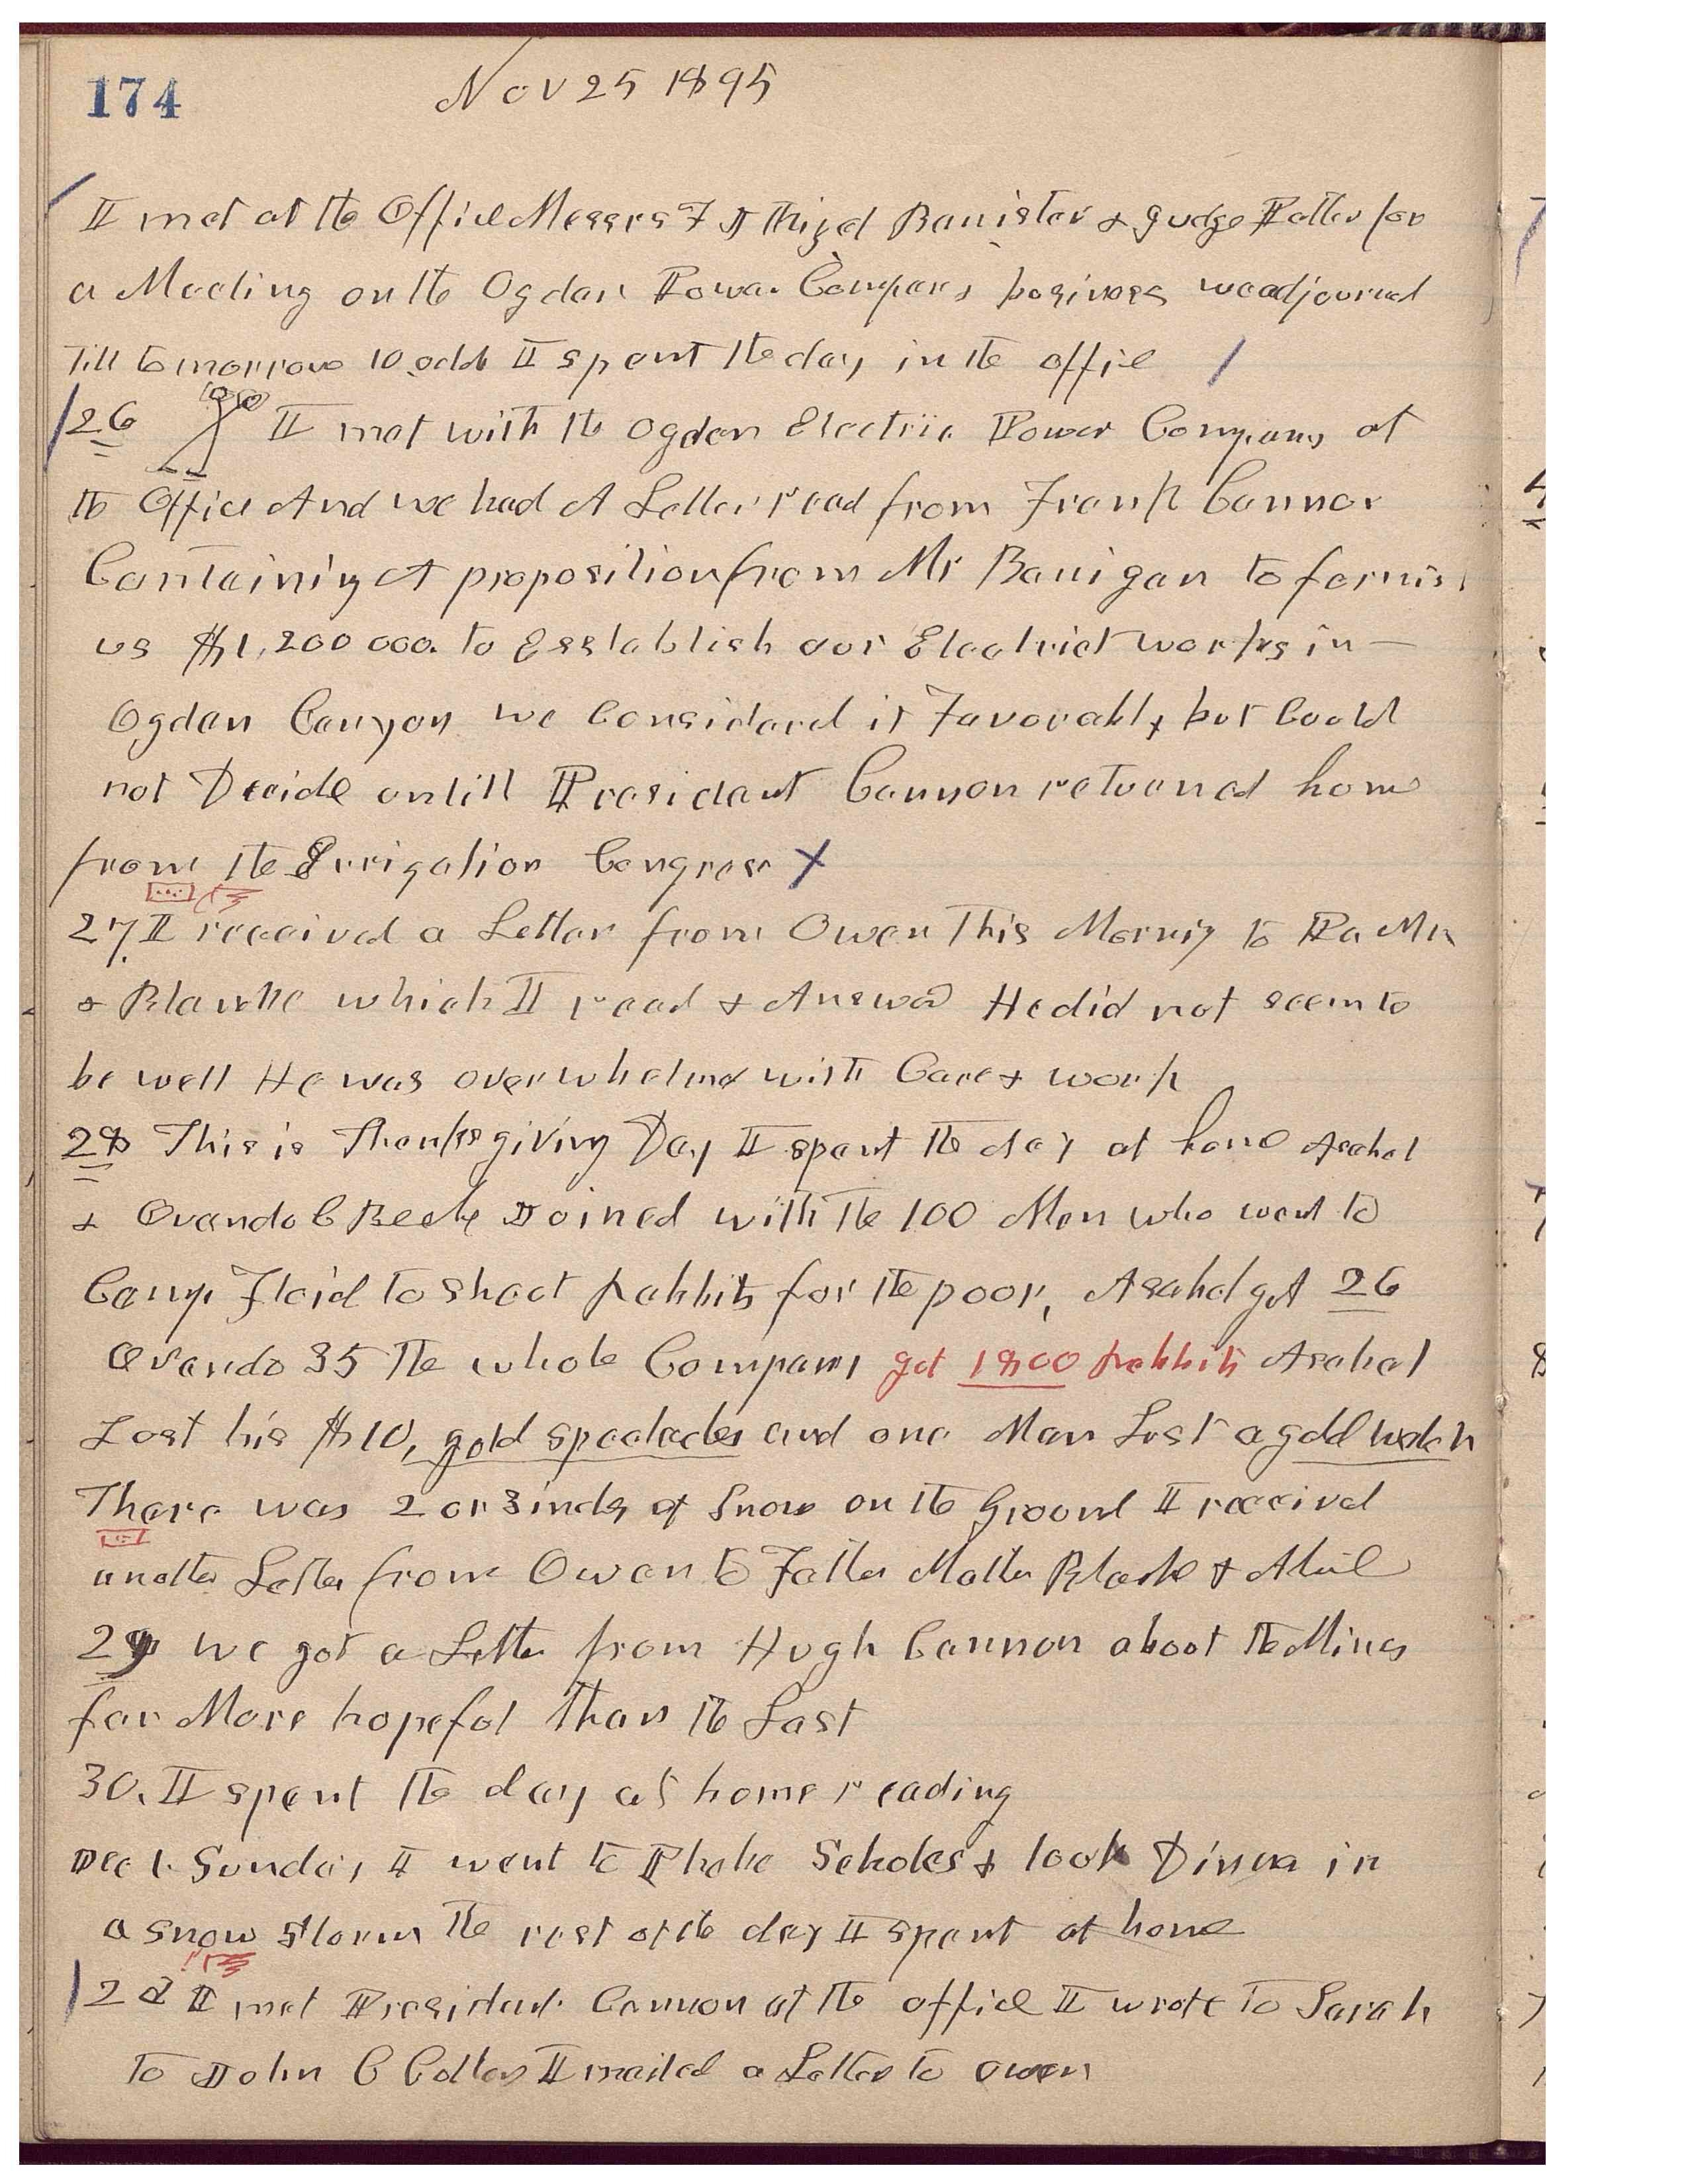 174
Nov 25 1895
I met at the Office Messers F J Banister & Judge Patter for
a Meeting on the Ogden Power Company busines we adjourned
till tomorrow 10 oclok I spent the day in the office /
26 I met with the Ogden Electric Power Company at
the Office And we had A Letter read from Frank Cannon
Containing A proposition from Mr Banigan to furnish
us $1,200 000. to Esstablish our Electrict works in
Ogden Canyon we Considered it Favorably but Could
not Decide untill President Cannon returned home
from the Irrigation Congress X
27. I received a Letter from Owen This Morning to Pa Ma
& Blanche which I read & Answerd He did not seem to
be well He was overwhelmed with Care & work
28 This is Thanksgiving Day I spent the day at home Asahel
& Ovando C Beebe Joined with the 100 Men who went to
Camp Floid to shoot Rabbits for the poor, Asahel got 26
Ovando 35 The whole Company got 1800 Rabbits Asahel
Lost his $10, gold spectacles and one Man Lost a gold watch
There was 2 or 3 inches of Snow on the Ground I received
another Letter from Owen to Father Mother Blanche & Abiel
29 we got a Letter from Hugh Cannon about the Mines
far More hopeful than the Last
30. I spent the day at home reading
Dec 1. Sunday I went to Phebe Scholes & took Dinner in
a snow storm the rest of the day I spent at home
2d I met President Cannon at the office I wrote to Sarah
to John C Cotter I mailed a Letter to Owen